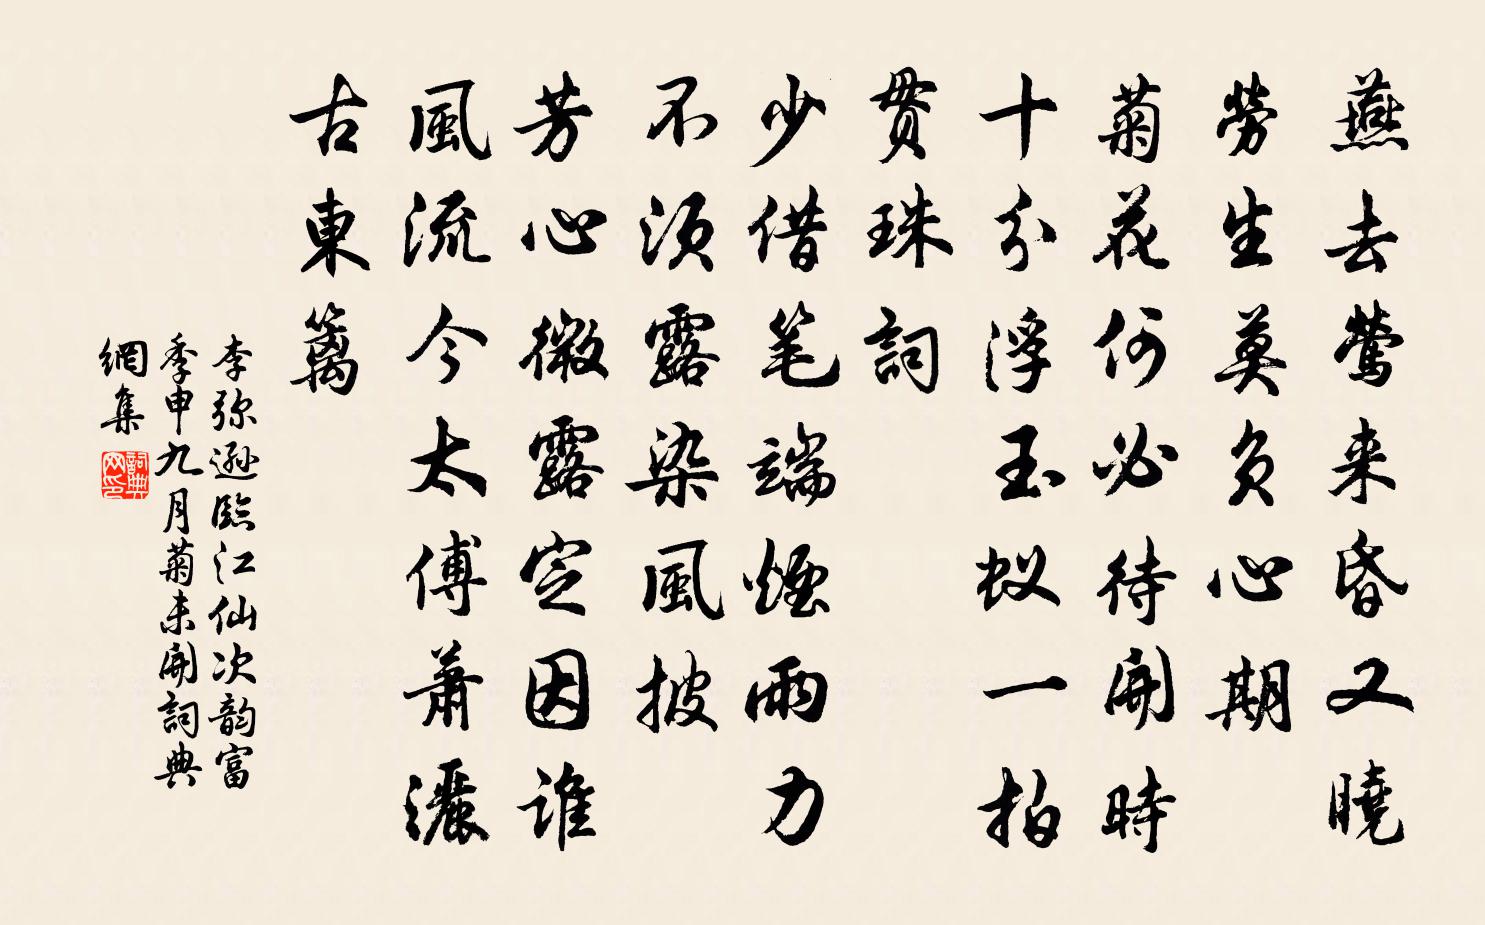 燕去鶯来昏又曉
勞生莫負心期
菊花何必待開時
十分浮玉蚁一拍
貫珠詞
少借笔端煙雨力
不須露染風披
芳心微露定因谁
風流今太傅蕭灑
古東籬
李弥遜臨江仙次韵富
季申九月菊未開詞典
網集
詞典网印